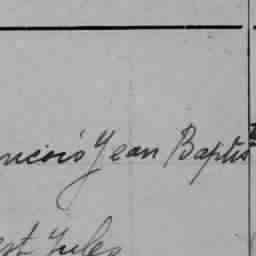 ncois Jean Baptis
est Jules